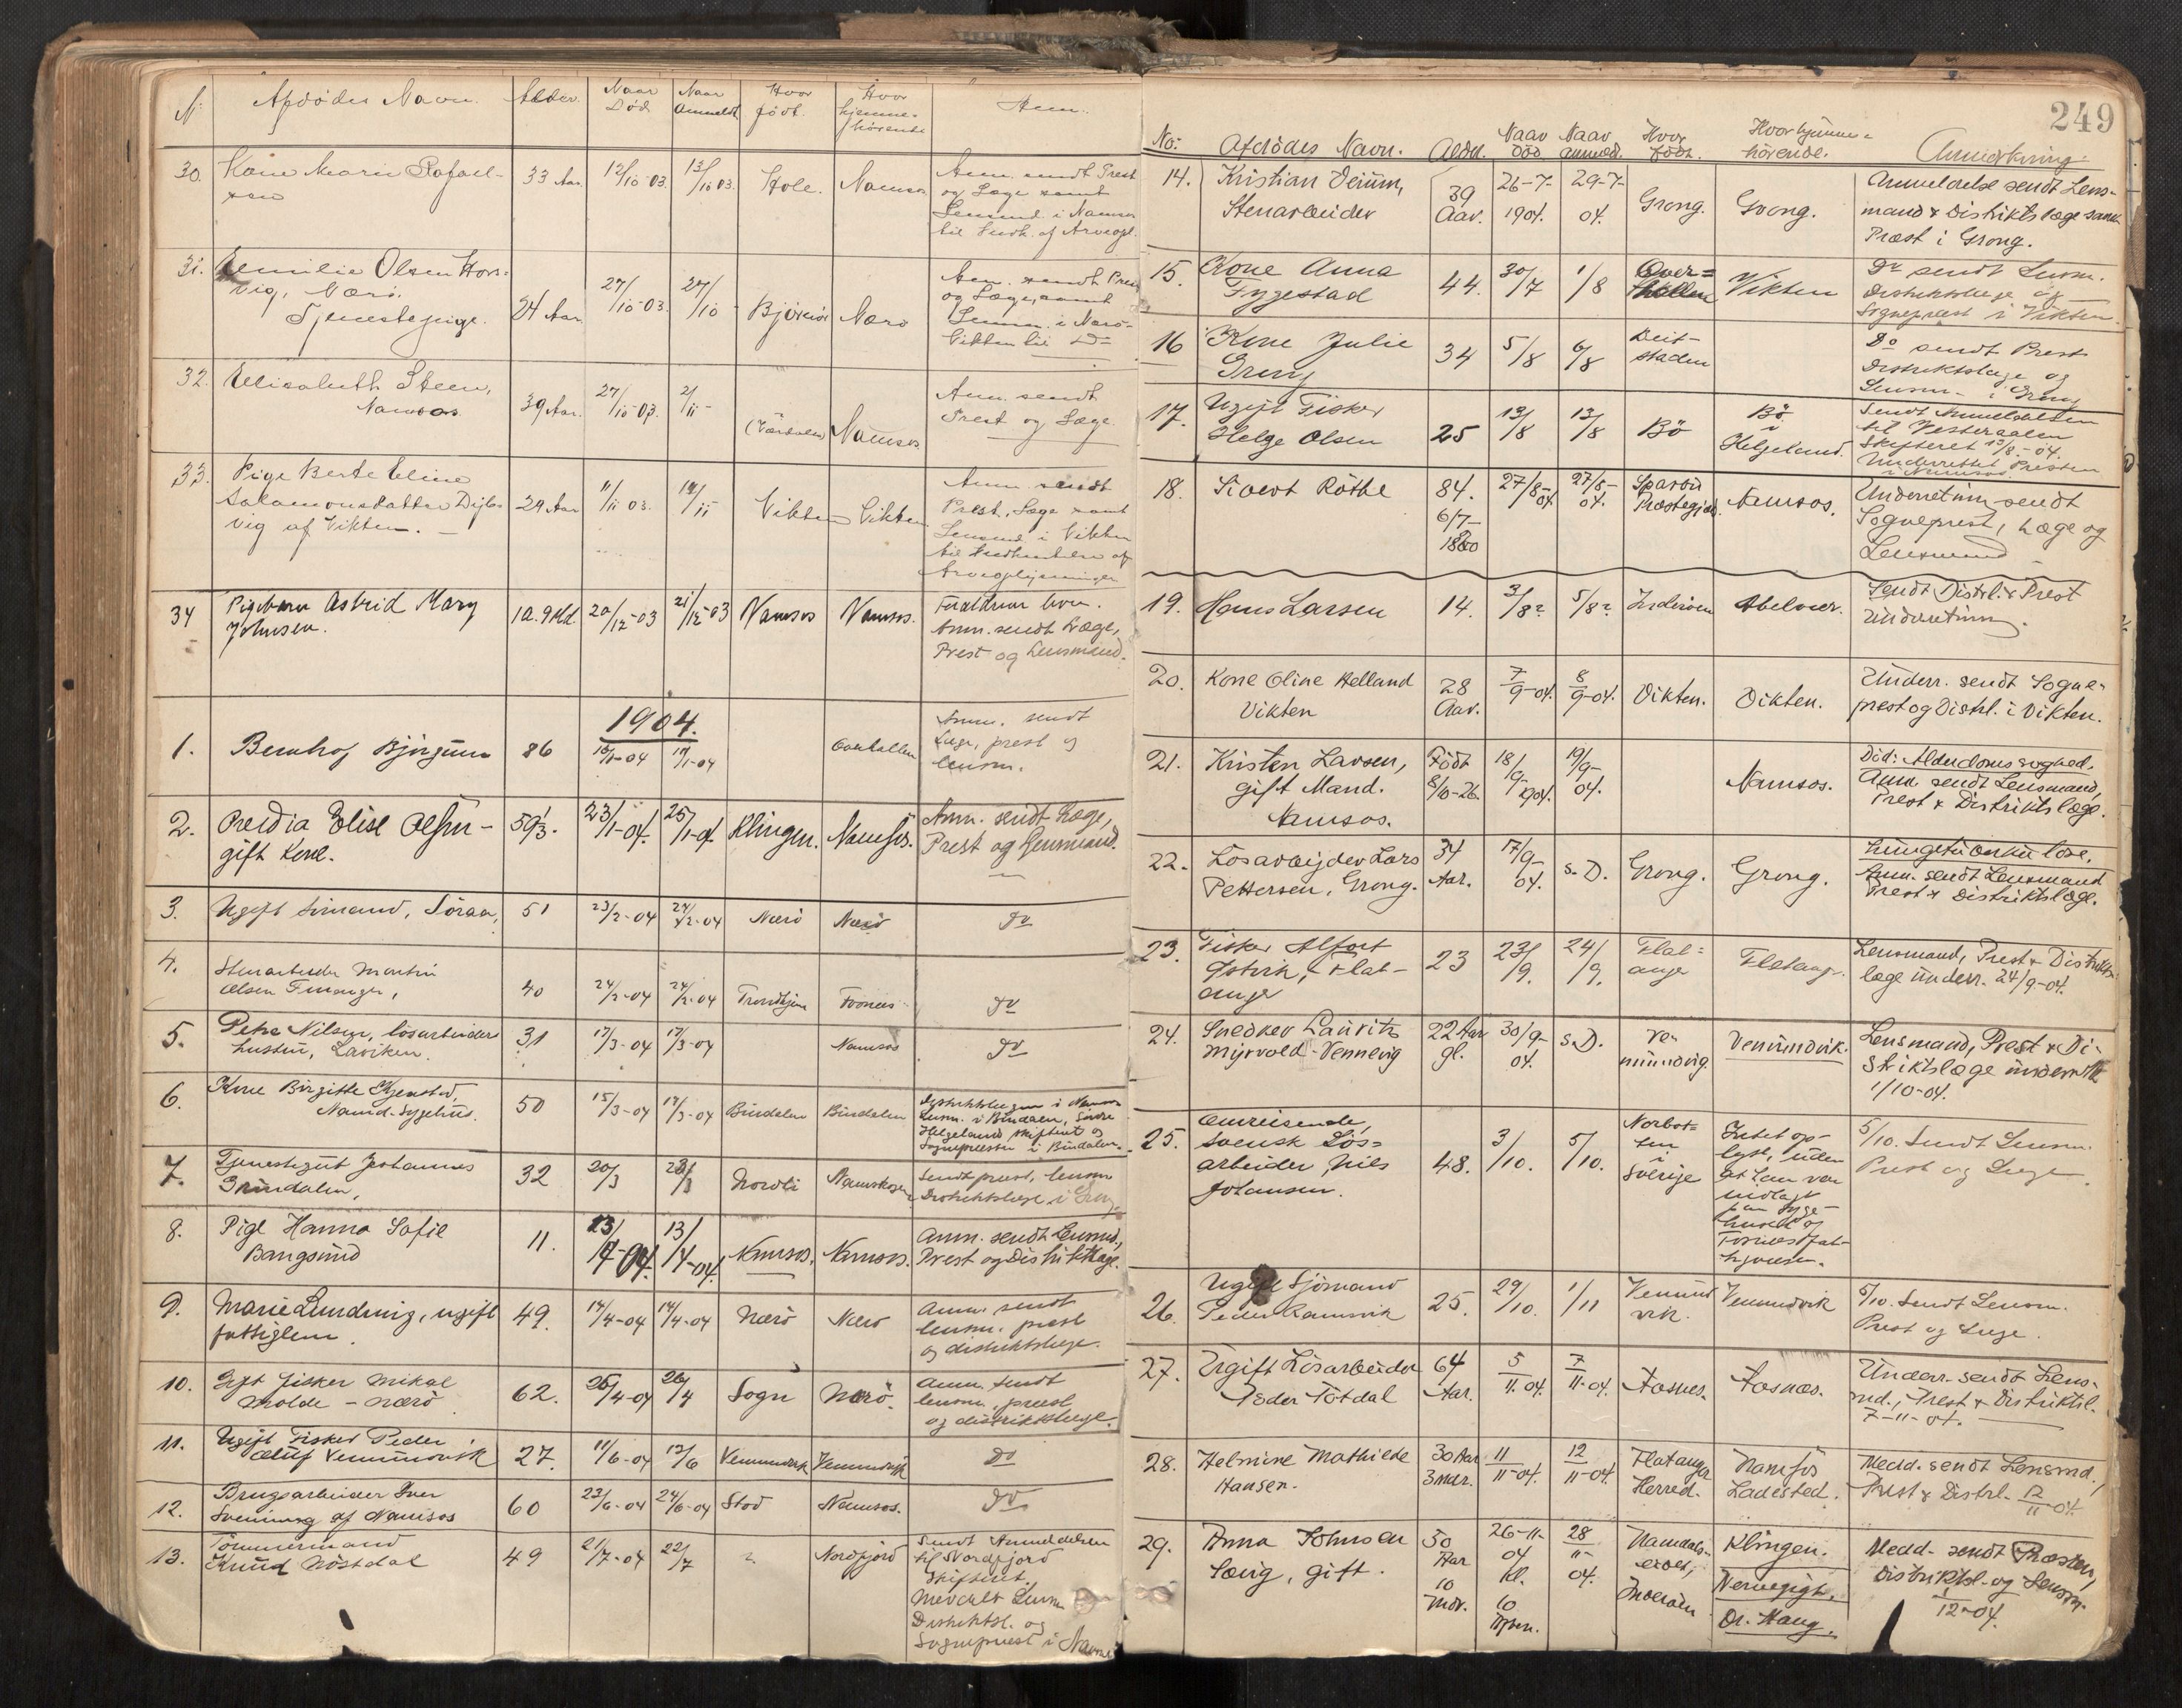 No Afdødes Navn. Alder. Naar Død Naar Anmeldt Hvor født. Hvor hjemme-hørende Anm.
30. Kone Marie Rafael-
sen
33 Aar 12/10-03 13/10 03. Hole. Namsos
Anm. sendt Prest
og Læge samt
Lensmd. i Namsos
til Indh. af Arveopl.
31. Emilie Olsen Hors=
vig, Nærö.
Tjenestepige.
24 Aar 27/10-03. 27/10 - Björnör Nærö
Anm. sendt Prest
og Læge, samt
Lensm. i Nærö-
Vikten til Do
32. Elisabeth Steen,
Namsos
39 Aar. 27/10-03. 2/11- (Værdalen) Namsos
Anm. sendt
Prest og Læge
33. Pige Berte Eline
Salamonsdatter Dyb-
vig af Vikten.
29 Aar 11/11 03. 14/11 Vikten Vikten
Anm. sendt
Prest, Læge samt
Lensmd. i Vikten
til Indhentelse af
Arveoplysninger
34 Pigebarn Astrid Mary
Johnsen.
1a. 9 Md. 20/12-03 21/12-03 Namsos Namsos.
Forældrene lever.
Anm. sendt Læge,
Prest og Lensmand.
1904.
1. Bernhof Bjørgum 86 16/1-04 17/1-04 Overhallen
Anm. sendt
Læge, prest og
lensm.
2. Peredia Elise Olsen-
gift Kone.
59 1/3. 23/1-04. 25/1-04 Klingen. Namsos.
Anm. sendt Læge,
Prest og Lensmand.
3. Ugift Simand, Söraa, 51 23/2-04 24/2-04 Nærö Nærö Do
4. Stenarbeider Martin
Olsen Finanger,
40 24/2-04 24/2-04 Trondhjem Fosnes Do
5. Petra Nilsen, lösarbeider
hustru, Laviken.
31 17/3-04 17/3-04 Namsos Do
6. Kone Birgitte Skjenstad,
Namd. Sygehus.
50 15/3-04 17/3-04 Bindalen Bindalen
Distriktslægen i Namsos
Lensm. i Bindalen, Söndre
Helgelands skifteret og
Sognepresten i Bindalen.
7. Tjenestegut Johannes
Grøndalen,
32 20/3 23/3 Nordli Namskogen
Sendt prest, lensm
Distriktslæge i Grong
8. Pige Hanna Sofie
Bangsund
11. 13/4-04. 13/4-04. Namsos. Namsos.
Anm. sendt Lensmd.,
Prest og Distriktslæge.
9. Marie Lundring, ugift
fattiglem.
49. 14/4-04 14/4-04 Nærö Nærö
Anm. sendt
lensm. prest
og distriktslæge.
10. Gift fisker Mikal
Molde - Nærö.
62. 25/4-04 26/4 Sogn Nærö.
Anm. sendt
lensm., prest
og distriktslæge.
11. Ugift Fisker Peder
Oluf Vemundvik
27. 11/6-04 12/6 Vemundvik Vemundvik Do
12. Brugsarbeider Iver
Svenning af Namsos
60 23/6-04 24/6-04 Stod Namsos. Do
13. Tömmermand
Knud Nöstdal
49 21/7-04 22/7 ? Nordfjord
Sendt Anmeldelsen
til Nordfjord
skifteret.
Meddelt Lensm
Distriktsl. og
Sogneprest i Namsos
249
No: Afdödes Navn. Alder. Naav död Naav anmeld. Hvor födt. Hvor hjemme=hörende. Anmerkning.
14. Kristian Deium,
Stenarbeider
39
Aar.
26-7-
1904.
29-7-
04.
Grong. Grong.
Anmeldelse sendt Lens-
mand & Distriktslæge samt
Præst i Grong.
15. Kone Anna
Fygestad
44. 30/7 1/8 Over=
hallen
Vikten
Do sendt Lensm.
Distriktslæge og
Sogneprest i Vikten.
16 Kone Julie
Grong
34 5/8 6/8 Beit-
staden
Do sendt Prest
Distriktslæge og
Lensm. i Grong
17. Ugift Fisker
Helge Olsen
25 13/8 13/8 Bö Bö
i
Helgeland.
Sendt Anmeldelsen
til Vesteraalen
Skifteret 13/8-04.
Underrettet Presten
i Namsos
18. Sivert Röthe 84.
6/7-
1820
27/8-
04
27/8-
04.
Sparbu
Præstegjeld.
Namsos.
Underretning sendt
Sogneprest, Læge og
Lensmand
19. Hans Larsen 14. 3/8? 5/8? Inderöen Abelvær.
Sendt Distrl. & Prest
Underretning.
20. Kone Oline Helland
Vikten
28
Aar.
7/9-04. 8/9-04. Vikten. Vikten.
Underr. sendt Sogne-
prest og Distrl. i Vikten.
21. Kristen Larsen,
gift Mand.
Namsos.
Födt
8/10-26.
18/9-
1904.
19/9-
04.
Namsos.
Död: Alderdomssvaghed.
Anm. sendt Lensmand,
Prest & Distriktslæge.
22. Lösarbeijder Lars
Pettersen, Grong.
34
Aar.
17/9-
04.
s. D. Grong. Grong.
Lungetuberkulose.
Anm. sendt Lensmand
Prest & Distriktslæge.
23. Fisker Alfort
Östvik, Flat-
anger
23 23/9. 24/9. Flat=
anger
Flatanger.
Lensmand, Prest & Distrikts
læge underr. 24/9-04.
24. Snedker Lauritz
Myrvold-Vennevig
22 Aar
gl.
30/9-
04.
s. D. Ve-
mundvig.
Vemundvik.
Lensmand, Prest & Di-
striktslæge underrett
1/10-04.
25. Omreisende,
svensk Lös=
arbeider Nils
Johansen.
48. 3/10. 5/10. Norbot=
ten
i
Sverige
Intet op-
lyst, uden
at han var
indlagt
paa Syge-
huset af
Fosnes fat-
tigvæsen.
5/10. Sendt Lensm.
Prest og Læge.
26. Ugift Sjömand
Peder Ramsvik
25. 29/10. 1/11 Vemund
vik.
Vemundvik
5/10. Sendt Lensm.
Prest og Læge.
27. Ugift Lösarbeider
Peder Totdal
64
Aar.
5/11-04. 7/11-04. Fosnes. Fosnæs.
Underr. sendt Lens-
md., Prest & Distriktsl.
7-11-04.
28. Helmine Mathilde
Hansen.
30 Aar
3 mdr.
11/11-04. 12/11-04. Flatanger
Herred.
Namsos
Ladested.
Medd. sendt Lensmd.,
Prest & Distrl. 12/11-04.
29. Anna Johnsen
Sævig, gift.
50
Aar
10
mdr.
26-11-
04
Kl.
10
28/11-
04.
Namdals-
eidet,
Klingen.
Or. Haug.
Medd. sendt Præsten,
Distriktsl. og Lensm.
/12-04.